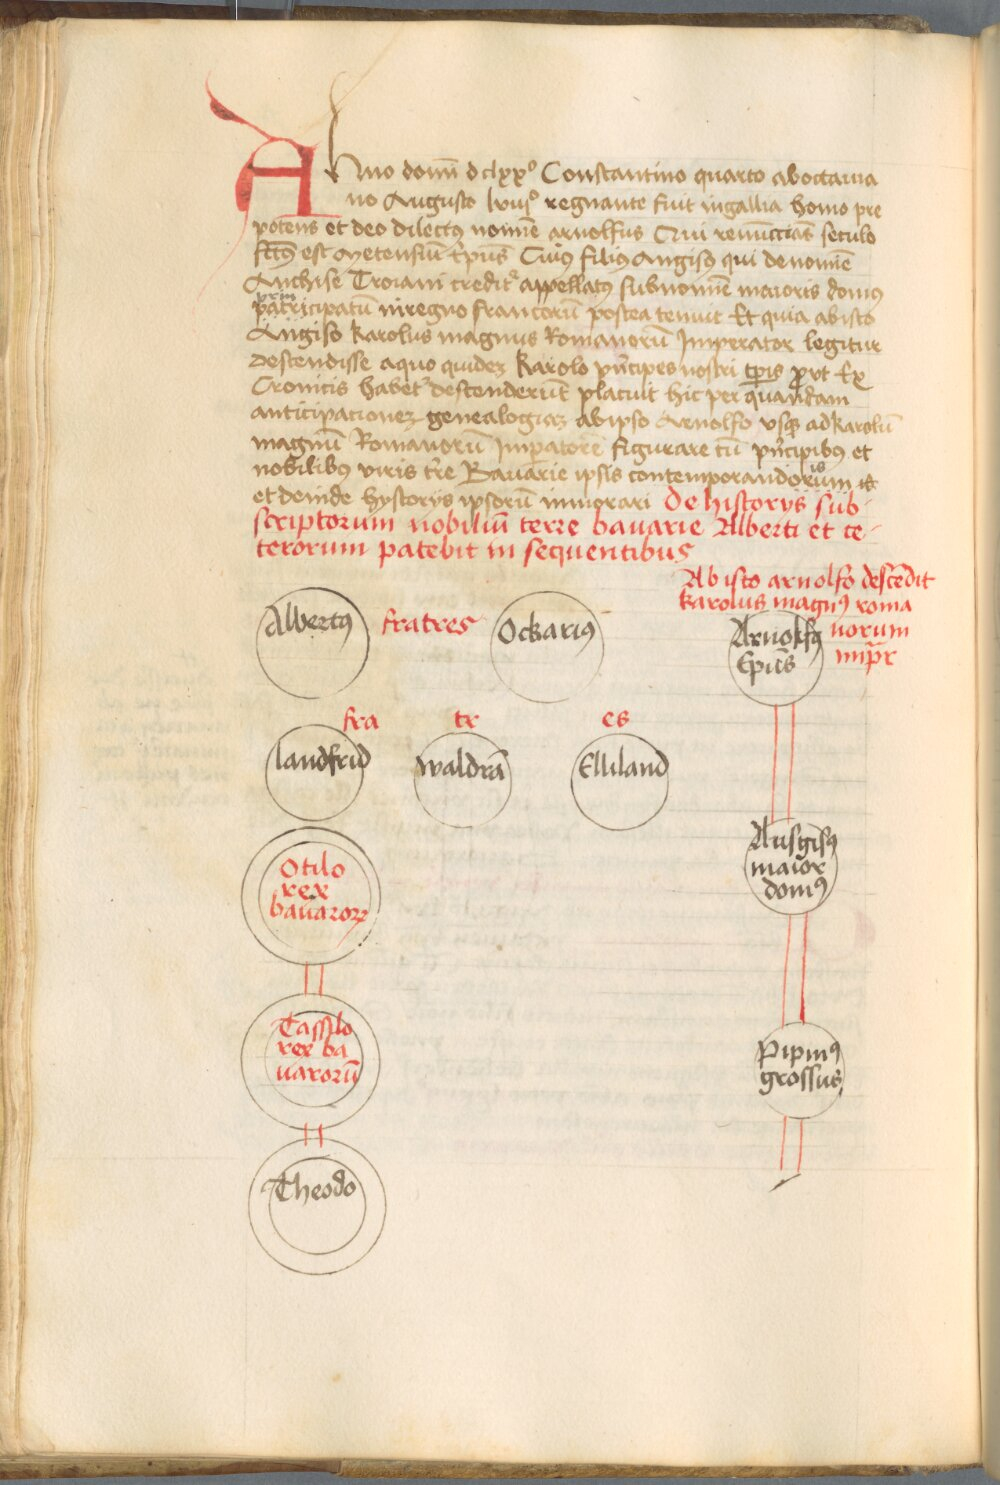 Anno domī dclxxº Constantino quarto aboctavia
no Augusto lviiº regnante fuit ingallia homo pre
potens et deo dilectꝰ nomīe arnolfus Qui renūccians seculo
fctūs est Metensiūm Ep̄us Cuiꝰ filiꝰ Angisꝰ qui denomīe
Anchise Troiani creditʳ appellatꝰ subnomīe maioris domꝰ
patricipatū inregno francorū postea tenuit Et quia abisto
Angiso karolus magnus Romanorū Imperator legitur
descendisse aquo quidez karolo pncipes nostri tpis put Ex
Cronicis habetʳ descenderūt placuit hic per quandam
anticipacionez genealogiaz abipso Arnolfo vsqꝫ adkarolū
magnū Romanorū Impatorē figurare cū pncipibꝰ et
nobilibꝰ viris tre Bavarie ipsis contemporandorum
et deinde hystorys ipsorū inmorari De historys sub
scriptorum nobiliū terre bavarie Alberti et ce
terorum patebit in sequentibus
Ab isto arnolfo descēdit
karolus magnꝰ roma
norum
impr
Albertꝰ fratres Ockariꝰ Arnolfꝰ
Ep̄us
fra tr es
landfrid waldrā Elliland
Ansgisꝰ
maior
domꝰ
Otilo
rex
bavaroꝝ
Tassilo
rex ba
varorū
Pipinꝰ
grossus
Theodo